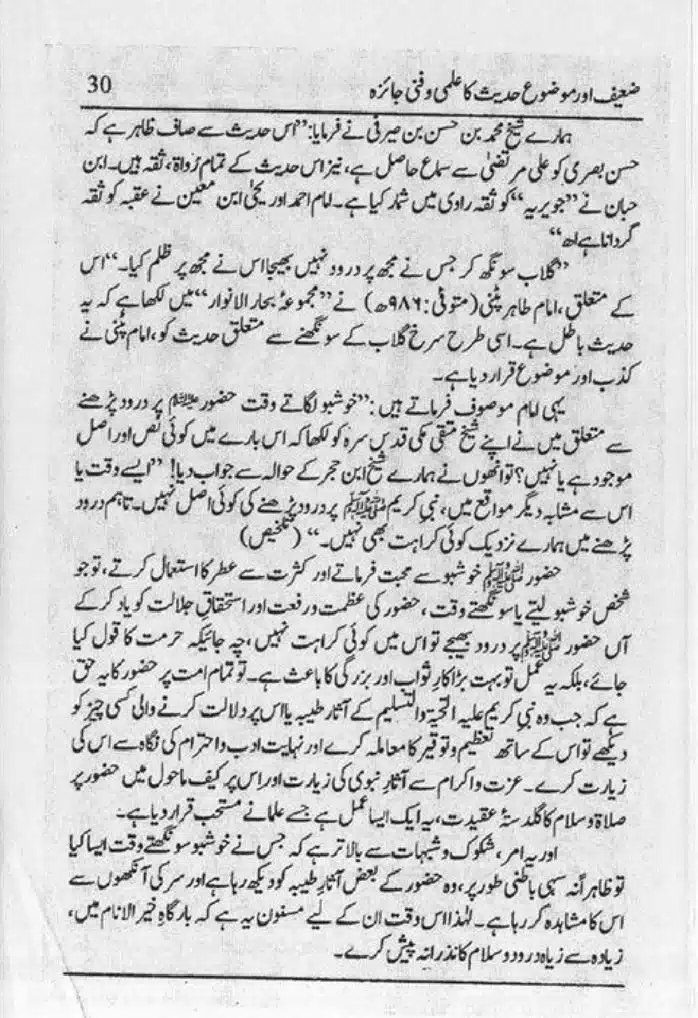 ضعیف اور موضوع حدیث کا علمی و فنی جائزہ 30
ہمارے شیخ محمد بن حسن بن صیرفی نے فرمایا: ”اس حدیث سے صاف ظاہر ہے کہ
حسن بصری کو علی مرتضیٰ سے سماع حاصل ہے، نیز اس حدیث کے تمام رُواۃ، ثقہ ہیں۔ ابن
حبان نے ”جویریہ“ کو ثقہ راوی میں شمار کیا ہے۔ امام احمد اور یحیٰ ابن معین نے عقبہ کو ثقہ
گردانا ہے اھ“
”گلاب سونگھ کر جس نے مجھ پر درود نہیں بھیجا اس نے مجھ پر ظلم کیا۔“ اس
کے متعلق، امام طاہر پٹنی (متوفی: ۹۸۶ھ) نے ”مجموعۂ بحار الانوار“ میں لکھا ہے کہ یہ
حدیث باطل ہے۔ اسی طرح سرخ گلاب کے سونگھنے سے متعلق حدیث کو، امام پٹنی نے
کذب اور موضوع قرار دیا ہے۔
یہی امام موصوف فرماتے ہیں: ”خوشبو لگاتے وقت حضور ﷺ پر درود پڑھنے
سے متعلق میں نے اپنے شیخ متقی مکی قدس سرہ کو لکھا کہ اس بارے میں کوئی نص اور اصل
موجود ہے یا نہیں؟ تو انھوں نے ہمارے شیخ ابن حجر کے حوالہ سے جواب دیا! ”ایسے وقت یا
اس سے مشابہ دیگر مواقع میں، نبی کریم ﷺ پر درود پڑھنے کی کوئی اصل نہیں۔ تاہم درود
پڑھنے میں ہمارے نزدیک کوئی کراہت بھی نہیں۔“ (تلخیص)
حضور ﷺ خوشبو سے محبت فرماتے اور کثرت سے عطر کا استعمال کرتے، تو جو
شخص خوشبو لیتے یا سونگھتے وقت، حضور کی عظمت و رفعت اور استحقاقِ جلالت کو یاد کر کے
آں حضور ﷺ پر درود بھیجے تو اس میں کوئی کراہت نہیں، چہ جائیکہ حرمت کا قول کیا
جائے، بلکہ یہ عمل تو بہت بڑا کارِ ثواب اور بزرگی کا باعث ہے۔ تو تمام امت پر حضور کا یہ حق
ہے کہ جب وہ نبی کریم علیہ التحیۃ والتسلیم کے آثار طیبہ یا اس پر دلالت کرنے والی کسی چیز کو
دیکھے تو اس کے ساتھ تعظیم و توقیر کا معاملہ کرے اور نہایت ادب و احترام کی نگاہ سے اس کی
زیارت کرے۔ عزت و اکرام سے آثارِ نبوی کی زیارت اور اس پر کیف ماحول میں حضور پر
صلاۃ و سلام کا گلدستۂ عقیدت، یہ ایک ایسا عمل ہے جسے علما نے مستحب قرار دیا ہے۔
اور یہ امر، شکوک و شبہات سے بالاتر ہے کہ جس نے خوشبو سونگھتے وقت ایسا کیا
تو ظاہراً نہ سہی باطنی طور پر، وہ حضور کے بعض آثارِ طیبہ کو دیکھ رہا ہے اور سر کی آنکھوں سے
اس کا مشاہدہ کر رہا ہے۔ لہٰذا اس وقت ان کے لیے مسنون یہ ہے کہ بارگاہِ خیر الانام میں،
زیادہ سے زیاہ درود و سلام کا نذرانہ پیش کرے۔